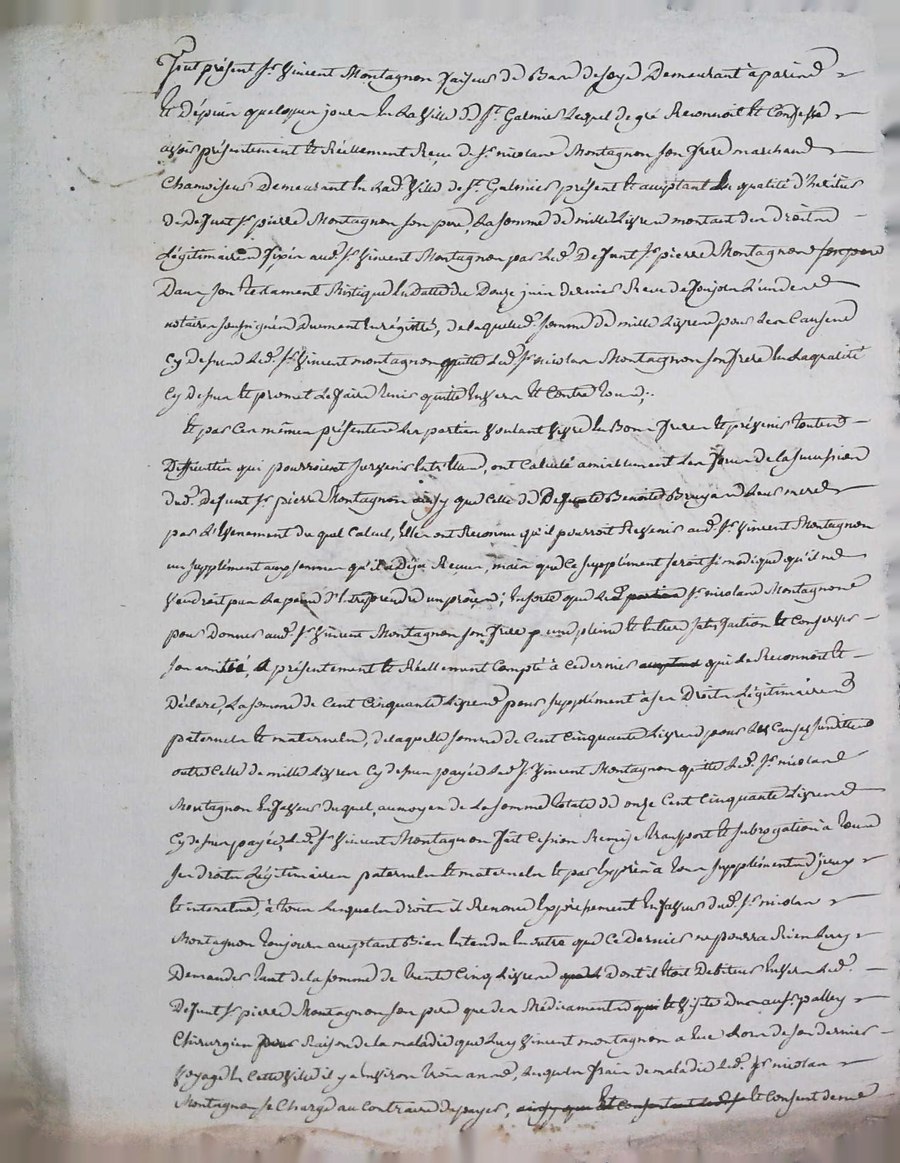 Fut présent Sr Vincent Montagnon faiseur de Bas de soye Demeurant à paris
Et Dépuis quelques jours en La Ville de St Galmier Lequel de gré Reconnoit Et Confesse
avoir présentement Et Réellement Reçu de Sr nicolas Montagnon son frere marchand
Chamoiseur Demeurant En Lad. Ville de St Galmier présent Et acceptant En qualité d'héritier
de Defunt Sr pierre Montagnon son pere, La somme de mille Livres montant des droits
Légitimaires fixés aud. Sr Vincent Montagnon par Led. Defunt Sr pierre Montagnon son pere
Dans son testament Mistique En Datte du Douze juin dernier Reçu de L'un des
notaires soussignés Dument Enrégistré, de laquelle somme de mille Livres pour Les Causes
Cy dessus Led. Sr Vincent montagnon quitte Led. Sr nicolas Montagnon son frere En La qualité
Cy dessus Et promet Le faire tenir quitte Envers Et Contre tous;
Et par Ces mêmes présentes Les parties Voulant Vivre En Bons freres Et prévenir toutes
Difficultés qui pourroient survenir Entr'Elles, ont Calculé amiablement Les forces de la succession
dud. Defunt Sr pierre Montagnon ainsy que Celle de Defunte Benoite Bruyas Leur mere
par L'Evenement du quel Calcul, Elles ont Reconnu qu'il pourroit Revenir aud. Sr Vincent Montagnon
un supplément aux sommes qu'il a déja Reçues, mais que Ce supplément seroit si modique qu'il ne
Vaudroit pas La peine d'Entreprendre un procès; En sorte que Led. parties Sr nicolas Montagnon
pour donner aud. Sr Vincent Montagnon son frere une pleine Et Entiere satisfaction Et Conserver
son amitié, a présentement Et Réellement Compté à Ce dernier acceptant qui Le Reconnoit Et
Déclare, La somme de Cent Cinquante Livres pour supplément à ses Droits Légitimaires
paternels Et maternels, de laquelle somme de Cent Cinquante Livres pour Les Causes susdites
outre Celle de mille Livres Cy dessus payée Led. Sr Vincent Montagnon quitte Led. Sr nicolas
Montagnon En faveur duquel, au moyen de La somme totale de onze Cent Cinquante Livres
Cy dessus payée, Led. Sr Vincent Montagnon fait Cession Remise transport Et subrogation à tous
ses droits Légitimaires paternels Et maternels Et par Exprès à tous suppléments d'iceux
Et interets, à tous Lesquels droits il Renonce Expressement En faveur dud. Sr nicolas
Montagnon toujours acceptant Bien Entendu En outre que Ce dernier ne pourra Rien Luy
Demander tant de la somme de trente Cinq Livres dont il Etoit Debiteur Envers Led.
Defunt Sr pierre Montagnon son pere que des Médicaments Et Visites Dus au Sr palley
Chirurgien pour Raison de la maladie que Luy Vincent montagnon a Eue Lors de son dernier
Voyage En Cette Ville il y a Environ trois ans, Lesquels frais de maladie Led. Sr nicolas
Montagnon se Charge au Contraire de payer, ainsy que Et Consentant Led. Sr Et Consent de me